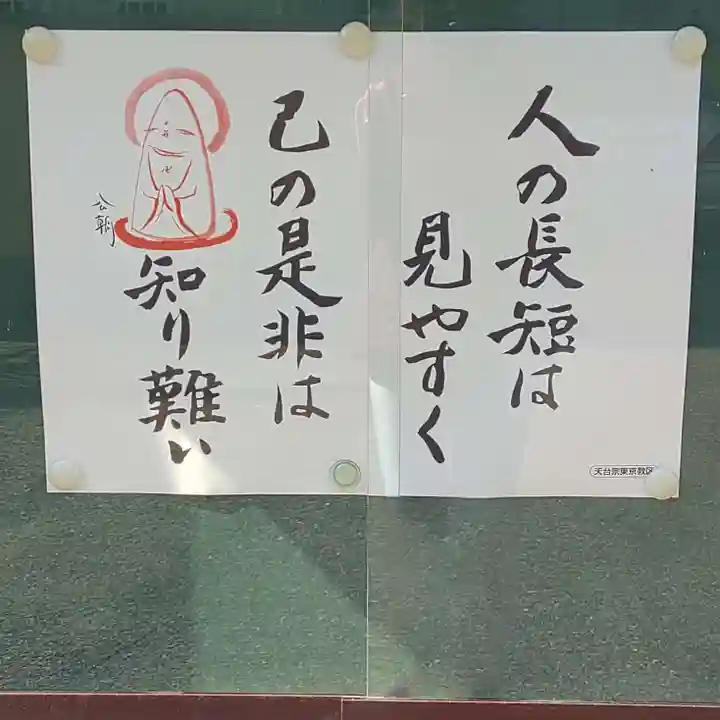 人の長短は
見やすく
己の是非は
知り難い
公朝
天台宗東京教区